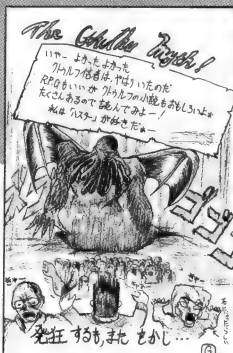 The Cthulhu
いやー よかったよかった
クトゥルフ信者は、やはりいたのだ
RPGもいいが クトゥルフの小説もおもしろいよぉ
たくさんあるので 読んでみよー!
私は「ハスター」が好きだぁー
ゴゴゴ
発狂 するも、また をかし…
G